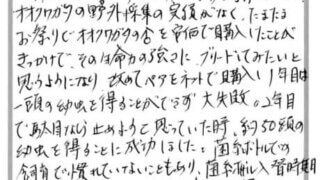 オオクワガタの野外採集の実績がなく、たまたま
お祭りでオオクワガタの♀を安価で購入したことが
きっかけで、その生命力の強さに、ブリードしてみたいと
思うようになり 改めてペアをネットで購入し1年目は
一頭の幼虫を得ることができず 大失敗。2年目
で駄目なら止めようと思っていた時、約50頭の
幼虫を得ることに成功しました。菌糸ボトルでの
飼育で慣れていないこともあり、菌糸ボトル入替時期